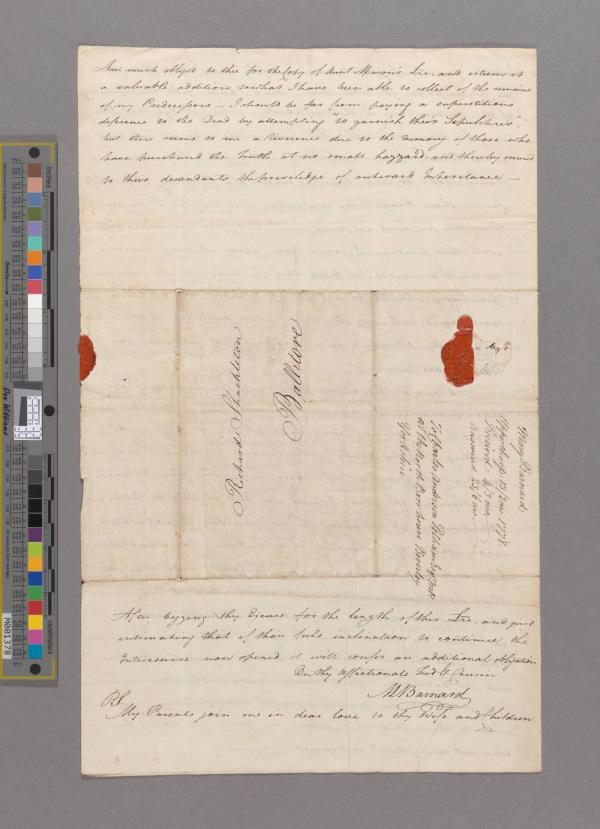 Am much obliged to thee for the Copy of Aunt Mason's Lre. and esteem it
a valuable addition to what I have been able to collect of the remains
of my Predecessors — I should be far from paying a superstitious
deference to the Dead by attempting "to garnish their Sepulchres",
but there seems to me a Reverence due to the memory of those who
have purchased the Truth at no small hazzard, and thereby secured
to their descendants the priviledge of outward Inheritance —
Richard Shackleton
Ballitore
Mary Barnard
Upperthorp 13/2 mo 1778
Received 4/3 mo.
Answered 25/6 mo.
To Charles Anderson Pelham Esqr
at the North Bar house Beverley
Yorkshire
After begging thy Excuse for the length of this Lre. and just
intimating that if thou feels inclination to continue the
Intercourse now opened it will confer an additional obligation
On thy affectionate Frd & Cousin
M Barnard
PS
My Parents join me in dear love to thy Wife and Children
inches
centimeters
Density
Don Williams
M001378